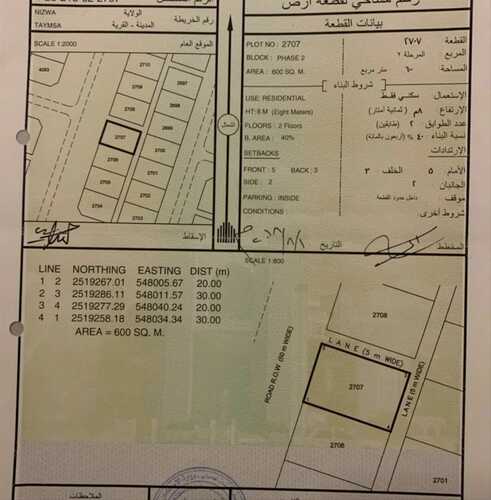 NIZWA الولاية
المدينة - القرية
TAYMSA رقم الخريطة
SCALE 1:2000 الموقع العام
4093
2710
2709
2708
2707
2706
2705
2704
2703
2700
2699
رسم مساحي لقطعة أرض
بيانات القطعة
PLOT NO : 2707 ٢٧٠٧ القطعة
BLOCK : PHASE 2 مرحلة ٢ المربع
AREA : 600 SQ. M. ٦٠٠ متر مربع المساحة
شروط البناء
USE: RESIDENTIAL سكني فقط الإستعمال
HT: 8 M (Eight Meters) ٨م (ثمانية أمتار) الإرتفاع
FLOORS : 2 Floors ٢ (طابقين) عدد الطوابق
B. AREA : 40% ٤٠ (أربعون بالمائة) نسبة البناء
SETBACKS الإرتدادات
FRONT : 5 BACK : 3 ٣ الخلف ٥ الأمام
SIDE : 2 ٢ الجانبان
PARKING : INSIDE داخل حدود القطعة موقف
CONDITIONS شروط أخرى
الشمال
الإسقاط
التاريخ
المخطط
SCALE 1:600
LINE NORTHING EASTING DIST (m)
1 2 2519267.01 548005.67 20.00
2 3 2519286.11 548011.57 30.00
3 4 2519277.29 548040.24 20.00
4 1 2519258.18 548034.34 30.00
AREA = 600 SQ. M.
2708
LANE (5 m WIDE)
ROAD R.O.W (50 m WIDE)
2707
LANE (5 m WIDE)
2706
الملاحظات